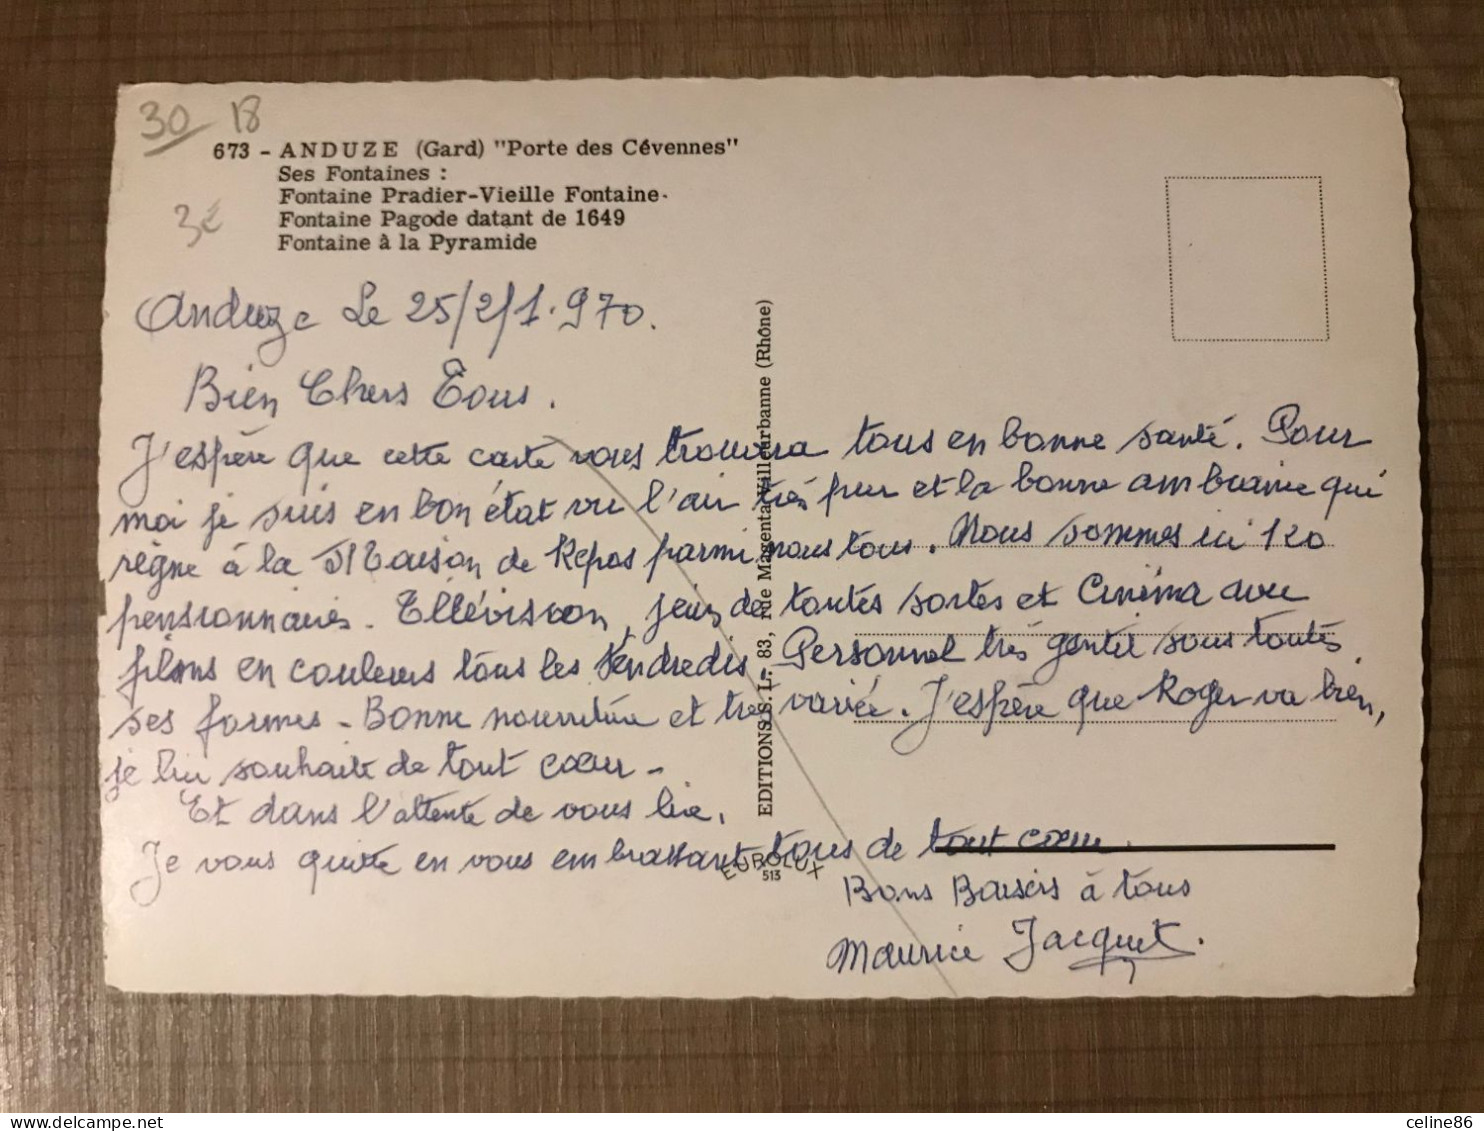 30 18
673 - ANDUZE (Gard) "Porte des Cévennes"
Ses Fontaines :
Fontaine Pradier-Vieille Fontaine-
Fontaine Pagode datant de 1649
Fontaine à la Pyramide
3€
Anduze Le 25/2/1.970.
Bien Chers Tous.
J'espère que cette carte vous trouvera tous en bonne santé. Pour
moi je suis en bon état vu l'air très pur et la bonne ambiance qui
règne à la Maison de Repos parmi nous tous. Nous sommes ici 120
pensionnaires. Téllévision, jeux de toutes sortes et Cinéma avec
films en couleurs tous les Vendredis. Personnel très gentil sous toutes
ses formes - Bonne nourriture et très variée. J'espère que Roger va bien,
je lui souhaite de tout cœur -
Et dans l'attente de vous lire,
Je vous quitte en vous embrassant tous de tout cœur.
Bons Baisers à tous
Maurice Jacquet.
EDITIONS S.L.- 83, rue Magenta Villeurbanne (Rhône)
EUROLUX
513
delcampe.net
celine86